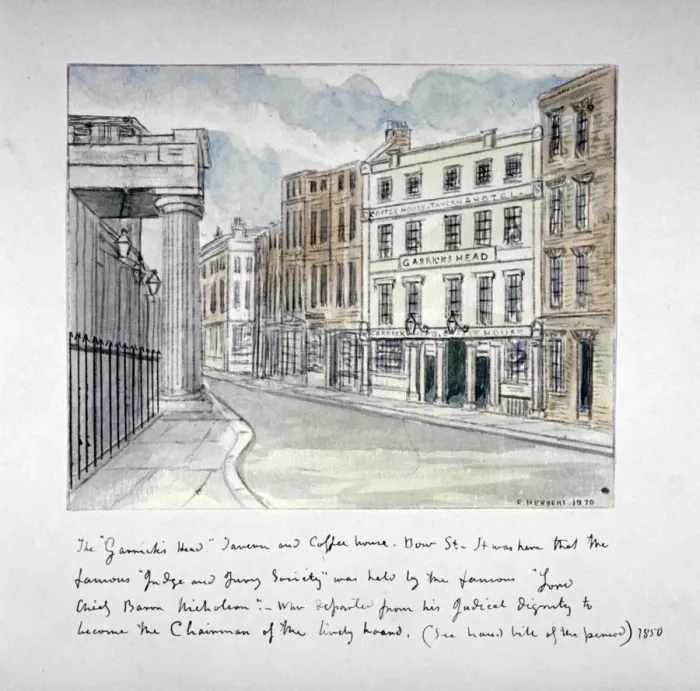 COFFEE HOUSE, TAVERN & HOTEL
GARRICK'S HEAD
GARRICK HEAD, COFFEE HOUSE
F. HERBERT. 1970
The "Garrick's Head" Tavern and Coffee house. Bow St - It was here that the
famous "Judge and Jury Society" was held by the famous "Lord
Chief Baron Nicholson":- Who departed from his Judical dignity to
become the Chairman of the lively board. (See hand bill of the period) 1850